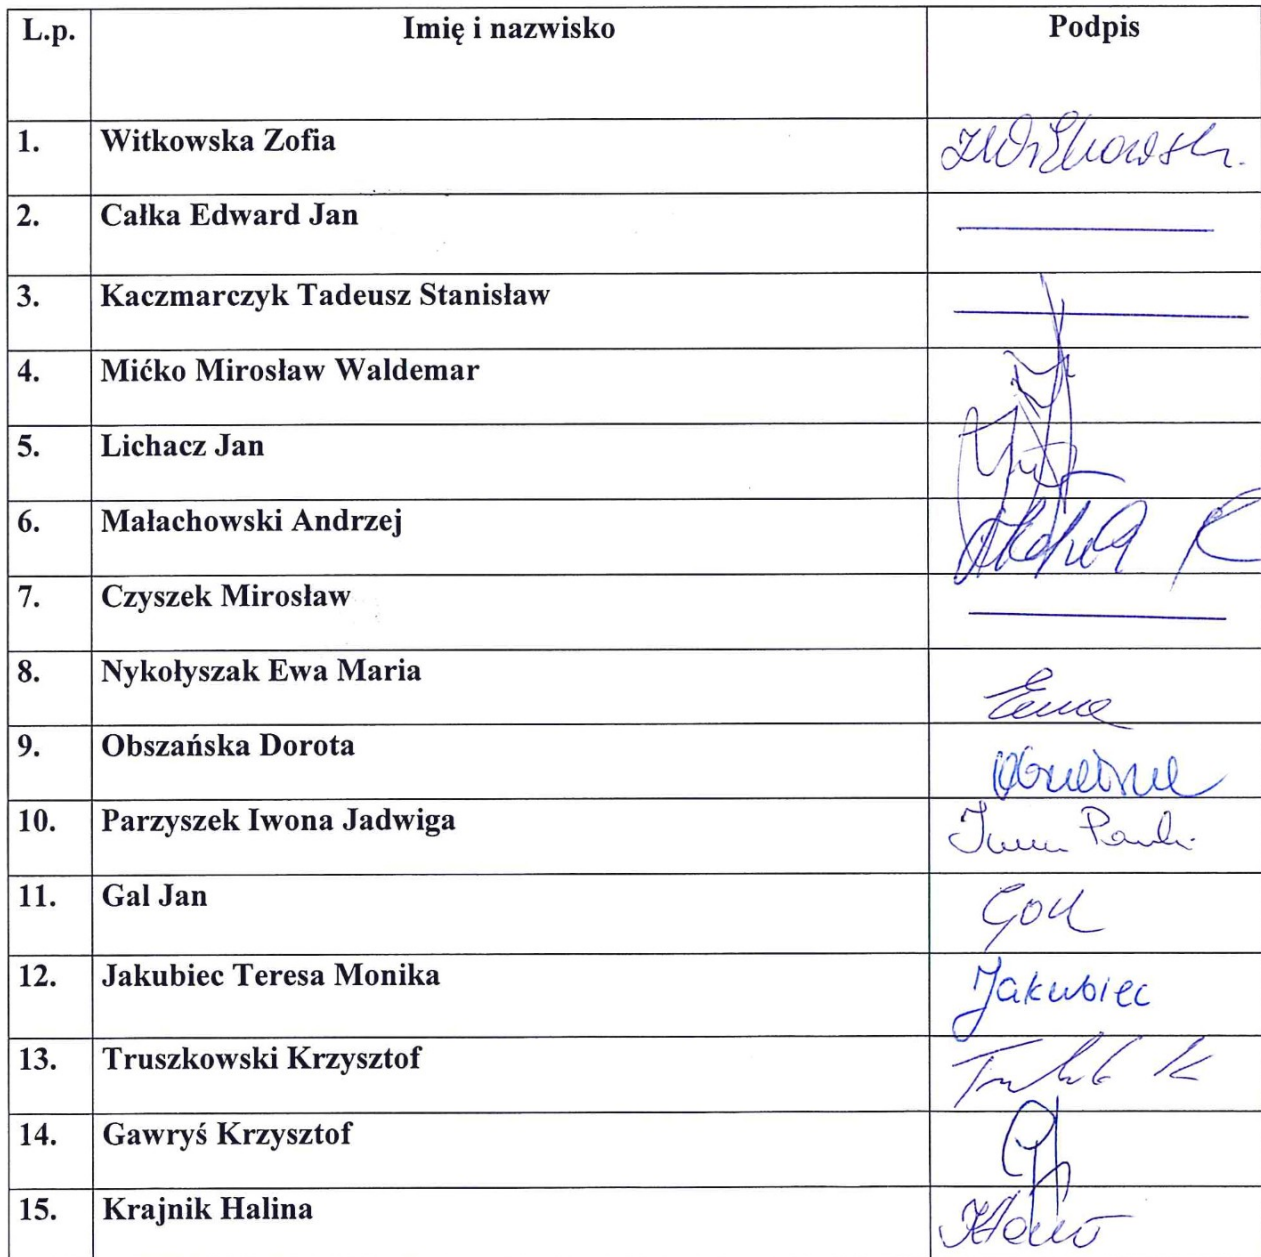 L.p. Imię i nazwisko Podpis
1. Witkowska Zofia
2. Całka Edward Jan
3. Kaczmarczyk Tadeusz Stanisław
4. Mićko Mirosław Waldemar
5. Lichacz Jan
6. Małachowski Andrzej
7. Czyszek Mirosław
8. Nykołyszak Ewa Maria
9. Obszańska Dorota
10. Parzyszek Iwona Jadwiga
11. Gal Jan
12. Jakubiec Teresa Monika Jakubiec
13. Truszkowski Krzysztof
14. Gawryś Krzysztof
15. Krajnik Halina